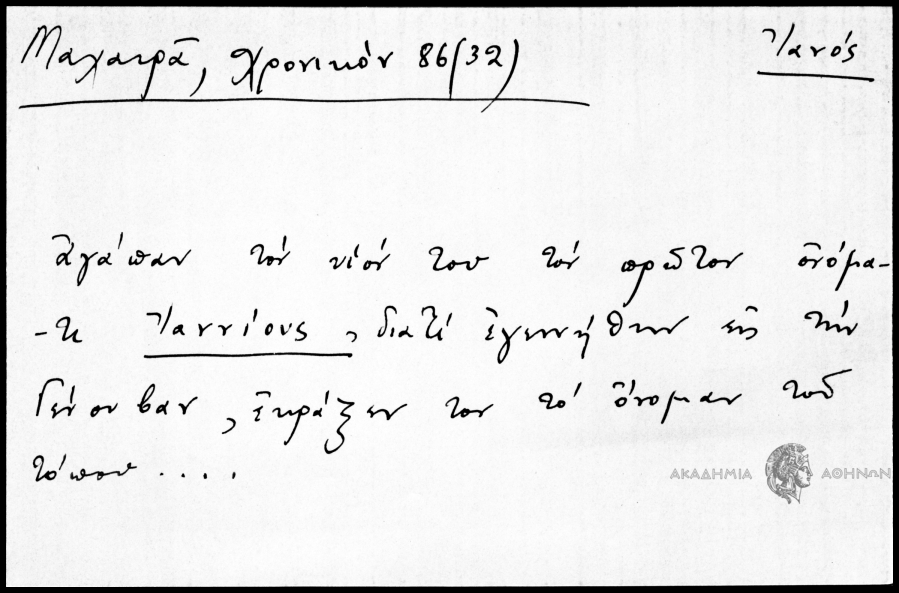 Μαχαιρᾶ, Χρονικόν 86(32)
Ἰανός
ἀγάπαν τόν υἱόν του τόν πρῶτον ὀνόμα-
-τι Ἰαννίους, διατί ἐγεννήθην εἰς τήν
Γένουβαν, ἔκραξεν τον τό ὄνομαν τοῦ
τόπου ....
ΑΚΑΔΗΜΙΑ ΑΘΗΝΩΝ